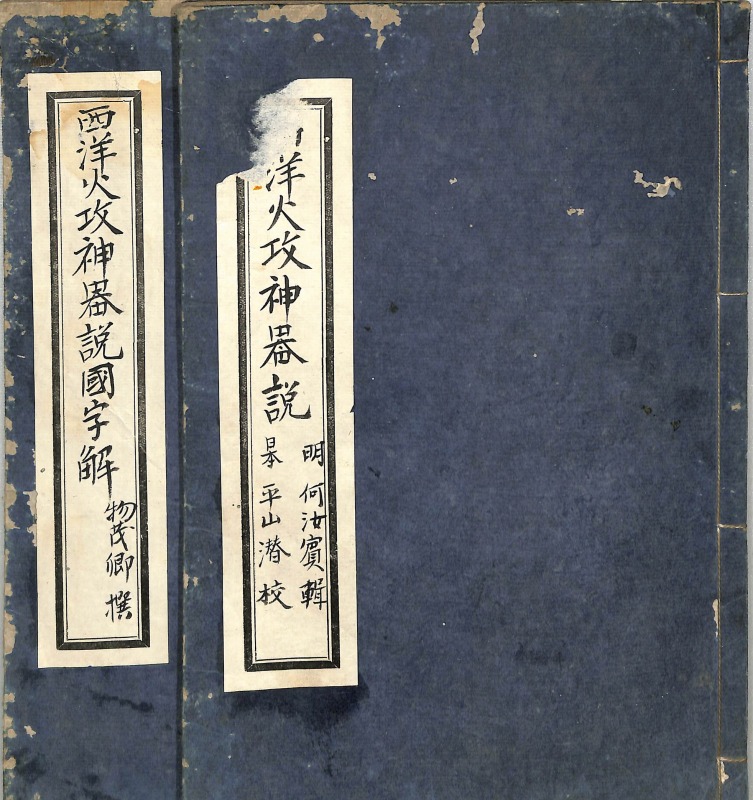 洋火攻神器説
明 何汝賓 輯
日本 平山潜 校
西洋火攻神器説國字解
物茂卿 撰